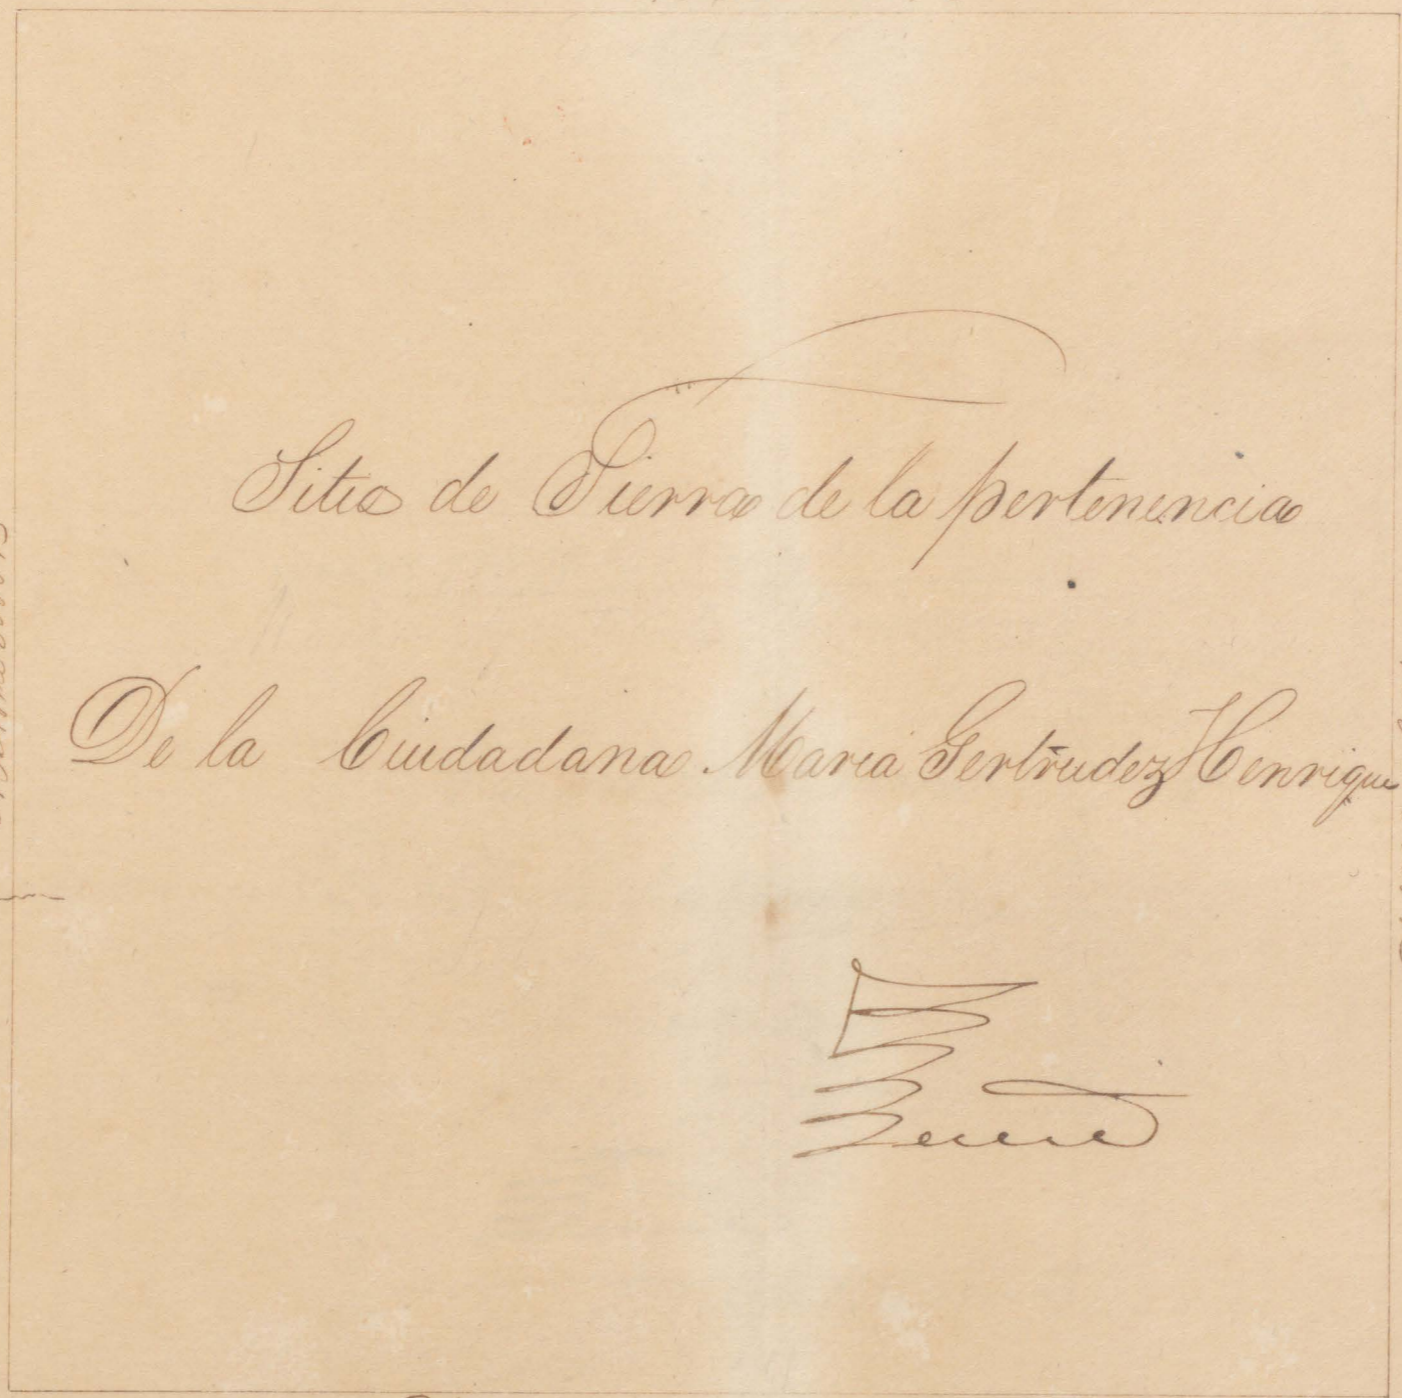 Sitio de Tierra de la pertenencia
De la Ciudadana Maria Gertrudez Henrique